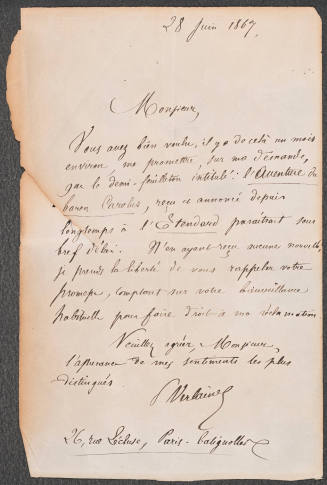 28 Juin 1867.
Monsieur,
Vous avez bien voulu, il y a de celà un mois
environ me promettre, sur ma demande,
que le demi-feuilleton intitulé : l'Aventure du
baron Carolus, reçu et annoncé depuis
longtemps à l'Etendard paraîtrait sous
bref délai. N'en ayant reçu aucune nouvelle,
je prends la liberté de vous rappeler votre
promesse, comptant sur votre bienveillance
habituelle pour faire droit à ma réclamation.
Veuillez agréer, Monsieur,
l'assurance de mes sentiments les plus
distingués
P Verlaine
26, rue Lécluse, Paris-Batignolles